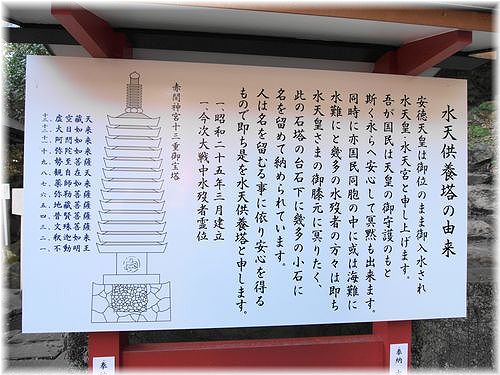 水天供養塔の由来
安徳天皇は御位のまま御入水され
水天皇・水天宮と申し上げます。
吾が国民は天皇の御守護のもと
斯く永らへ安心して冥黙も出来ます。
同時に亦国民同胞の中に或は海難に
水難にと幾多の水歿者の方々は即ち
水天皇さまの御膝元に冥りたく、
此の石塔の台石下に幾多の小石に
名を留めて納められています。
人は名を留むる事に依り安心を得る
もので即ち是を水天供養塔と申します。
一、昭和二十五年三月建立
一、今次大戦中水歿者霊位
赤間神宮十三重御宝塔
十三、虚空蔵菩薩
十二、大日如来
十一、阿閦如来
十、阿弥陀如来
九、勢至菩薩
八、観自在菩薩
七、薬師如来
六、弥勒菩薩
五、地蔵菩薩
四、普賢菩薩
三、文殊菩薩
二、釈迦如来
一、不動明王
奉納
奉納